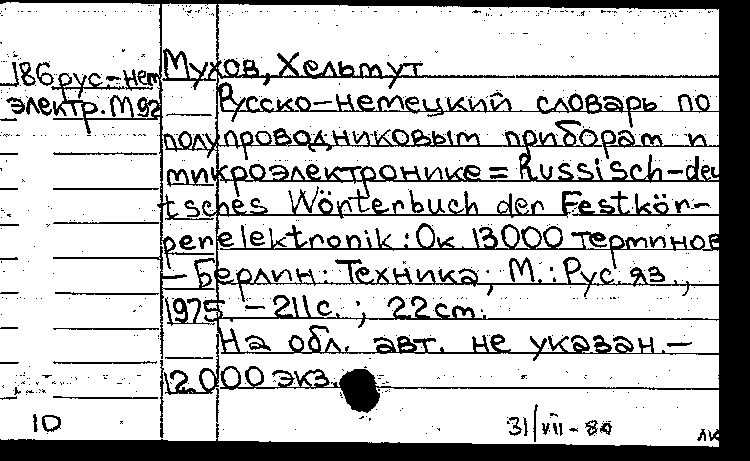 186рус.-нем Мухов, Хельмут
электр. М92 Русско-немецкий словарь по
полупроводниковым приборам и
микроэлектронике = Russisch-deu
tsches Wörterbuch der Festkör-
perelektronik : Ок. 13000 терминов
— Берлин : Техника ; М. : Рус. яз.,
1975. — 211с. ; 22cm.
На обл. авт. не указан. —
12.000 экз.
10 31/VII-80